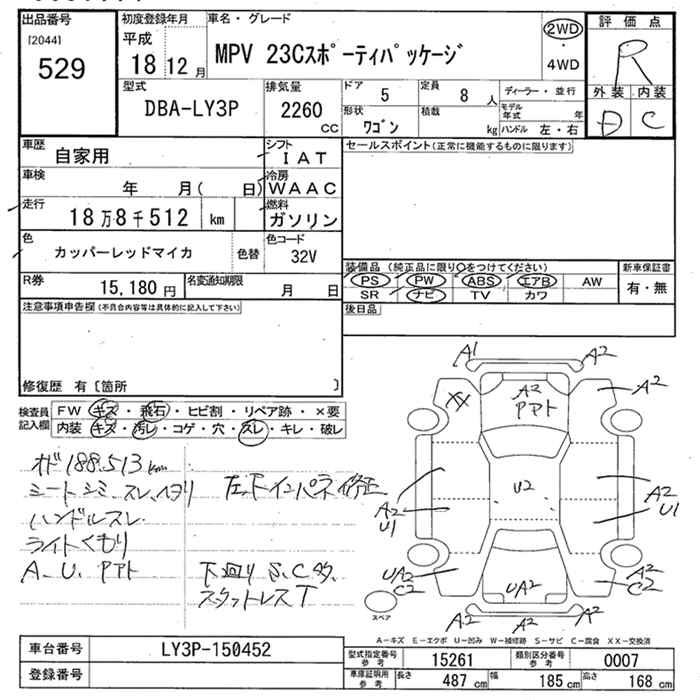 出品番号
[2044]
529
初度登録年月
平成
18 12 月
車名・グレード
MPV 23Cスポーティパッケージ
2WD
・
4WD
評価点
R
外装 内装
D C
型式
DBA-LY3P
排気量
2260 cc
ドア 5
定員 8 人
ディーラー・並行
形状 ワゴン
積載 kg
モデル年式 年
ハンドル 左・右
車歴 自家用
シフト IAT
車検 年 月( 日)
冷房 WAAC
走行 18万8千512 km
燃料 ガソリン
色 カッパーレッドマイカ 色替
色コード 32V
R券 15,180 円
名変通知期限 月 日
セールスポイント(正常に機能するものに限ります)
装備品 (純正品に限り○をつけてください)
PS PW ABS エアB AW
SR ナビ TV カワ
新車保証書
有・無
後日品
注意事項申告欄(不具合内容等は具体的に記入して下さい)
修復歴 有〔箇所 〕
検査員記入欄
FW キズ・飛石・ヒビ割・リペア跡・×要
内装 キズ・汚レ・コゲ・穴・スレ・キレ・破レ
オド188.513km
シートシミ、スレ、ヘタリ
ハンドルスレ
ライトくもり
A.U.Pアト
左下インパネ修正
下廻りS.C多
スタットレスT
A1 A2
XX A2 Pアト A2
U2
A2 U1 A2 U1
UA2 C2 UA2 A2 C2
A2 A2 A2
スペア
A-キズ E-エクボ U-凹み W-補修跡 S-サビ C-腐食 XX-交換済
車台番号 LY3P-150452
登録番号
型式指定番号 参考 15261
類別区分番号 参考 0007
車庫証明用 参考 長さ 487 cm 幅 185 cm 高さ 168 cm